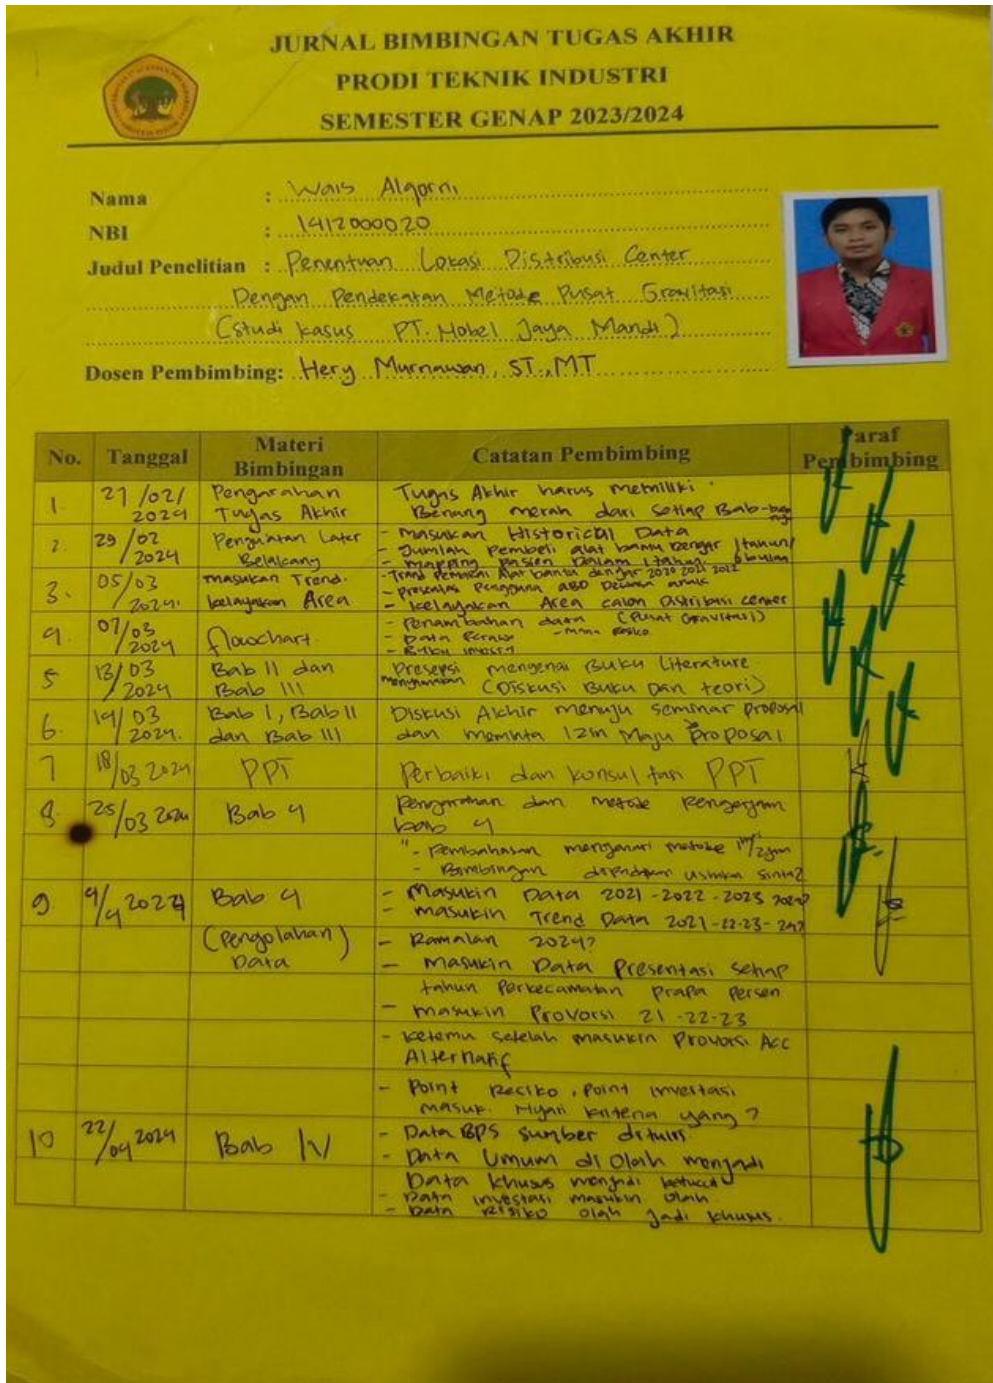 JURNAL BIMBINGAN TUGAS AKHIR
PRODI TEKNIK INDUSTRI
SEMESTER GENAP 2023/2024
Nama : Wais Alqorni
NBI : 1412000020
Judul Penelitian : Penentuan Lokasi Distribusi Center
Dengan Pendekatan Metode Pusat Gravitasi
(Studi kasus PT. Hobel Jaya Mandi)
Dosen Pembimbing: Hery Murnawan, ST.,MT
No. Tanggal Materi Bimbingan Catatan Pembimbing Paraf Pembimbing
1. 27/02/2024 Pengarahan Tugas Akhir Tugas Akhir harus memiliki
Benang merah dari setiap Bab-
2. 29/02 2024 Penguatan Later Belakang - Masukan Historical Data
- Jumlah Pembeli alat bantu Dengar 1tahun/
- mapping pasien Dalam 1tahun, 6bulan
3. 05/03 2024. masukan Trend. kelayakan Area - Trend Pembeli Alat bantu dengar 2020 2021 2022
- presentas Pengguna ABD Dewasa anak
- kelayakan Area calon Distribusi center
4. 07/03 2024 flowchart. - Penambahan data (Pusat Gravitasi)
- Data
5 13/03 2024 Bab II dan Bab III Presepsi mengenai Buku Literature
(Diskusi Buku Dan teori)
6. 14/03 2024. Bab I, Bab II dan Bab III Diskusi Akhir menuju seminar proposal
dan meminta Izin Maju Proposal
7 18/03 2024 PPT Perbaiki dan konsultasi PPT
8. 25/03 2024 Bab 4 Pengarahan dan metode Pengerjaan
bab 4
- Pembahasan mengenai metode
- Bimbingan
9. 4/4 2024 Bab 4 - Masukin Data 2021-2022-2023
- masukin Trend Data 2021-22-23-24?
(Pengolahan) Data - Ramalan 2024?
- Masukin Data Presentasi setiap
tahun Perkecamatan Persen
- masukin Provorsi 21-22-23
- ketemu setelah masukin Provorsi Acc
Alternatif
- Point Resiko, Point investasi
masuk. kriteria yang ?
10 22/04 2024 Bab IV - Data BPS Sumber ditulis
- Data Umum di Olah menjadi
Data khusus menjadi
- Data investasi masukin Olah
- Data Risiko olah Jadi khusus.